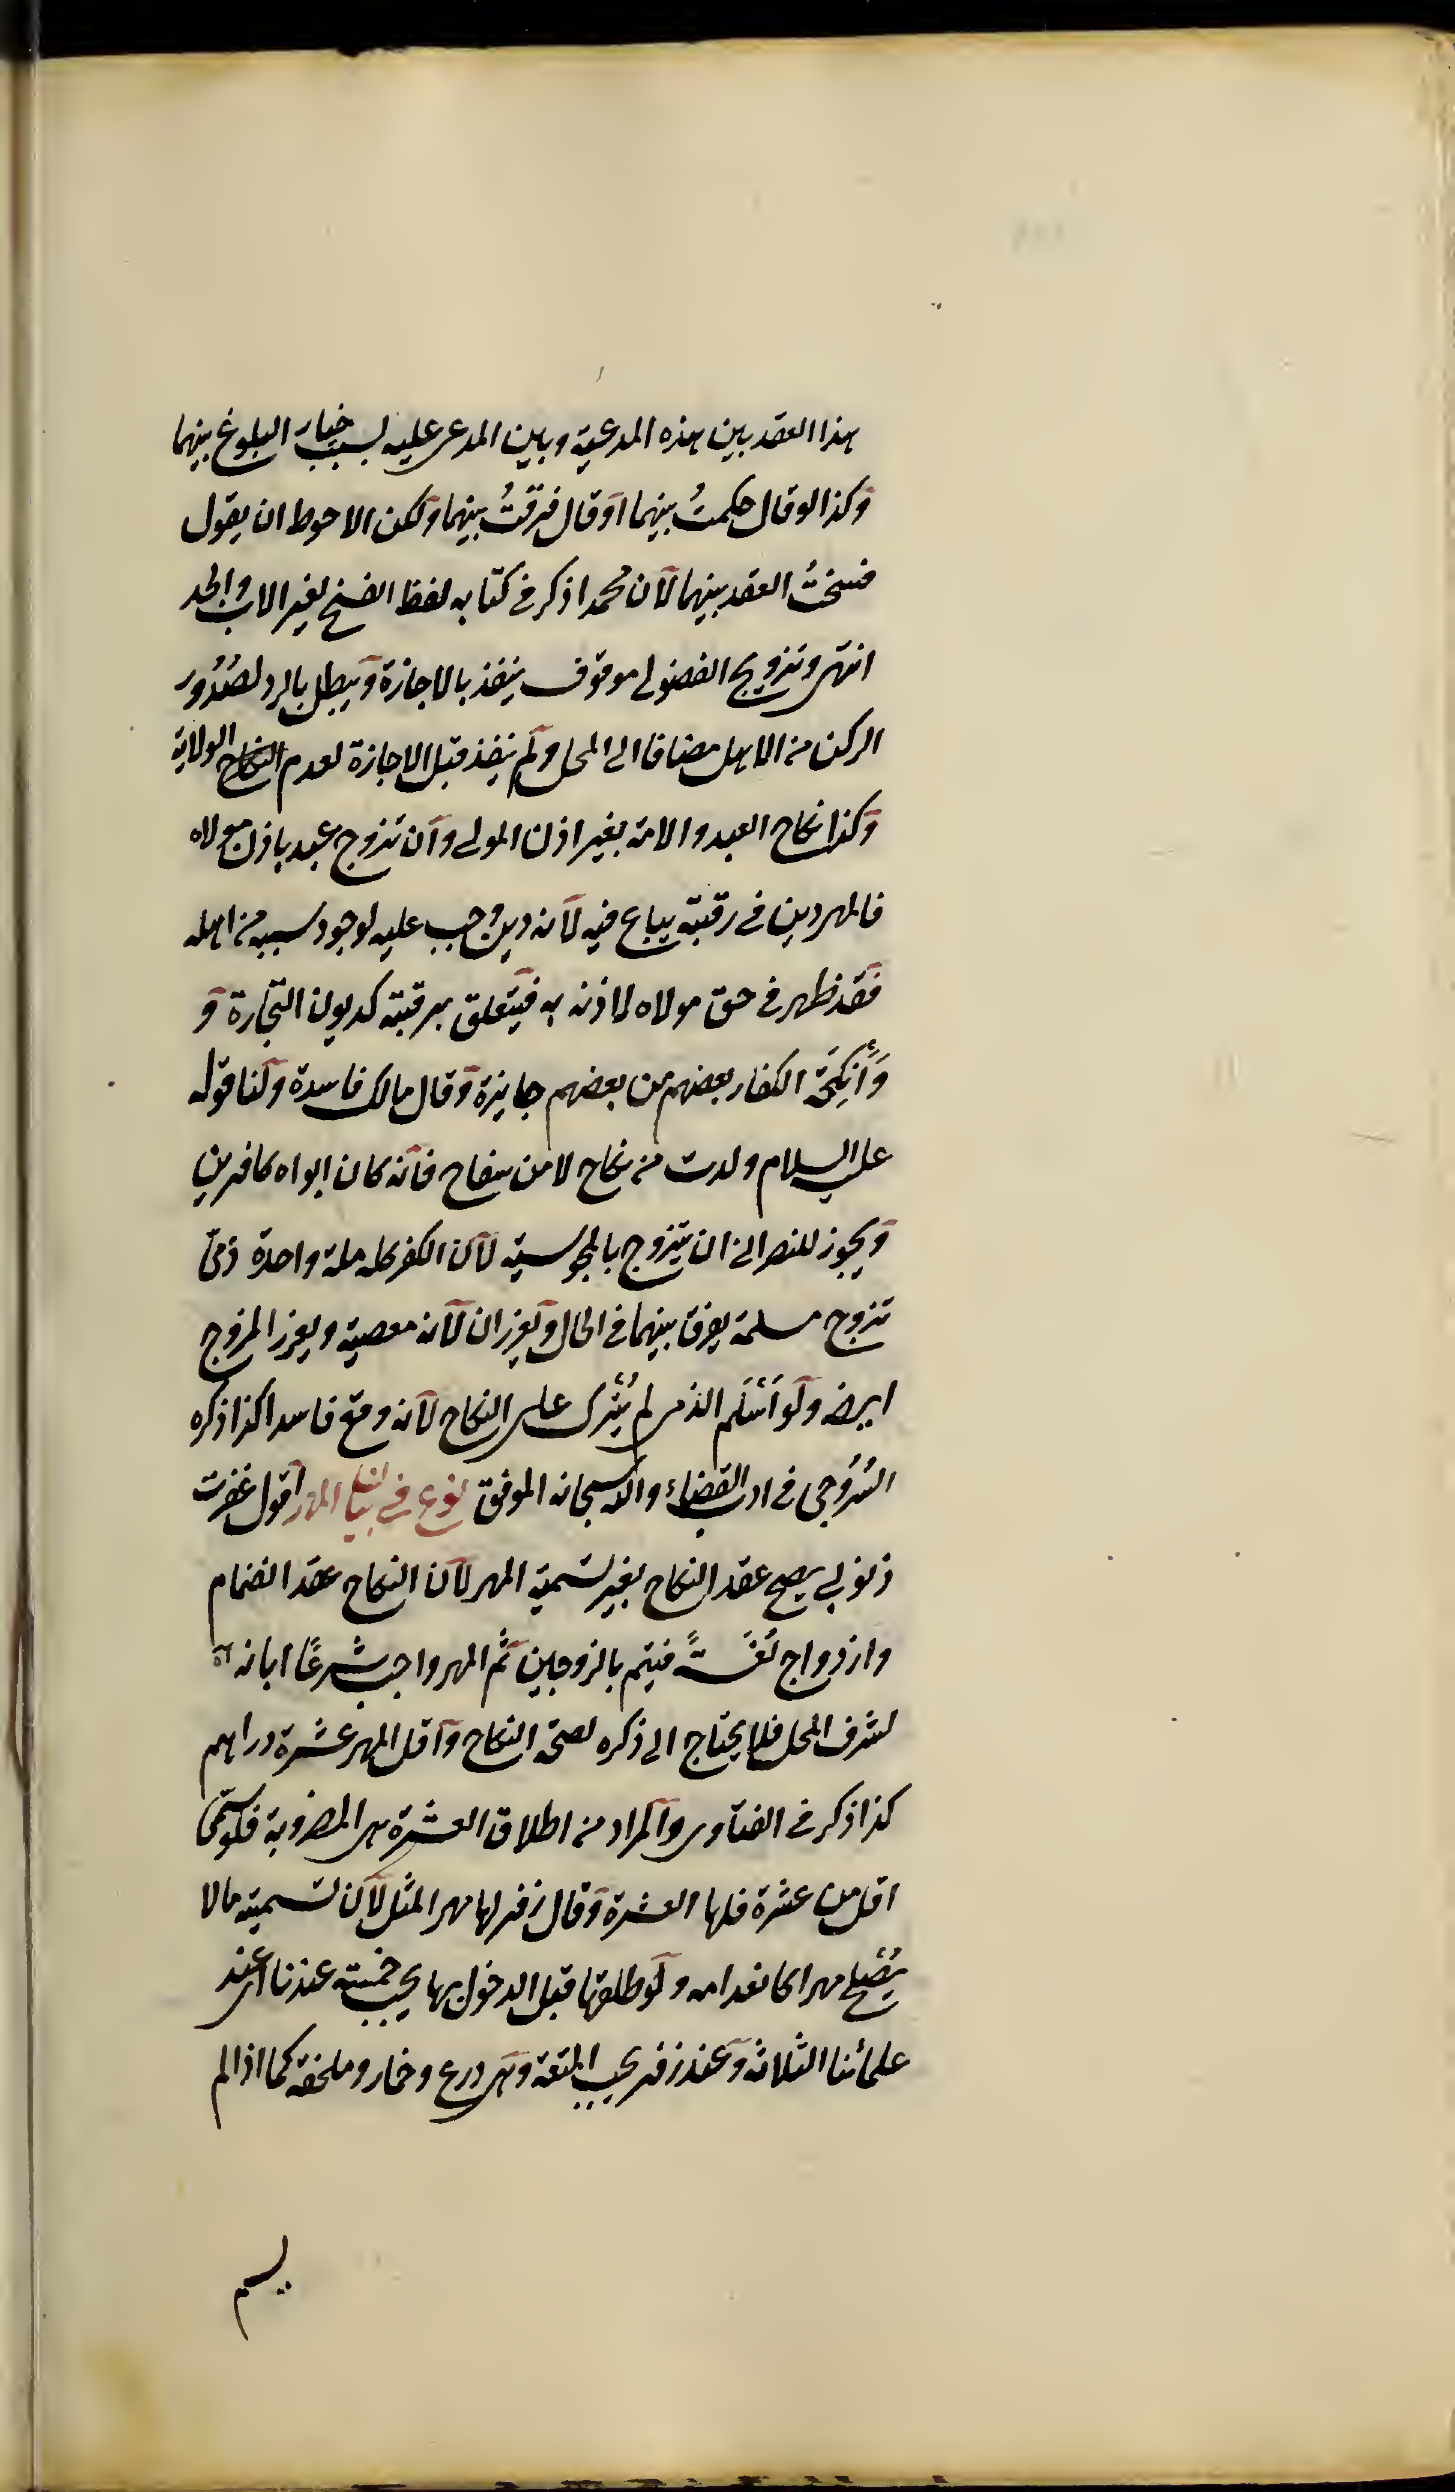 هذا العقد بين هذه المدعية وبين المدعى عليه بسبب خيار البلوغ بينهما
وكذا لو قال حكمتُ بينهما او قال فرقتُ بينهما ولكن الاحوط ان يقول
فسختُ العقد بينهما لان محمدا ذكر في كتابه لفظ الفسخ لغير الاب والجد
انتهى وتزويج الفضولي موقوف ينفذ بالاجازة ويبطل بالرد لصُدُور
الركن من الاهل مضافا الى المحل ولم ينفذ قبل الاجازة لعدم الولاية
وكذا نكاح العبد والامة بغير اذن المولى وان تزوج عبد باذن مولاه
فالمهر دين في رقبته يباع فيه لانه دين وجب عليه لوجود سببه من اهله
فقد ظهر في حق مولاه لاذنه به فيتعلق برقبته كديون التجارة و
وَأَنكِحَة الكفار بعضهم من بعضهم جايزة وقال مالك فاسدة ولنا قوله
عليه السلام ولدت من نكاح لا من سفاح فانه كان ابواه كافرين
ويجوز للنصراني ان يتزوج بالمجوسية لان الكفر كله ملة واحدة ذمى
تزوج مسلمة يفرق بينهما في الحال ويعزران لانه معصية ويعزر المزوج
ايضا ولو أَسْلَم الذمى لم يُتْرك على النكاح لانه وقع فاسدا كذا ذكره
السُرُوجى في ادب القضاء والله سبحانه الموفق نوع في بيان المهر اقول غفرت
ذنوبي يصح عقد النكاح بغير تسمية المهر لان النكاح عقد انضمام
وازدواج لُغَةً فيتم بالزوجين ثم المهر واجب شرعًا ابانة
لشرف المحل فلا يحتاج الى ذكره لصحة النكاح واقل المهر عشرة دراهم
كذا ذكر في الفتاوى والمراد من اطلاق العشرة هى المضروبة فلو سمّى
اقل من عشرة فلها العشرة وقال زفر لها مهر المثل لان تسمية ما لا
يَصْلُح مهرا كانعدامه ولو طلقها قبل الدخول بها يجب خمسة عندنا اى عند
علمائنا الثلاثة وعند زفر يجب المتعة وهى درع وخمار وملحفة كما اذا لم
يسم